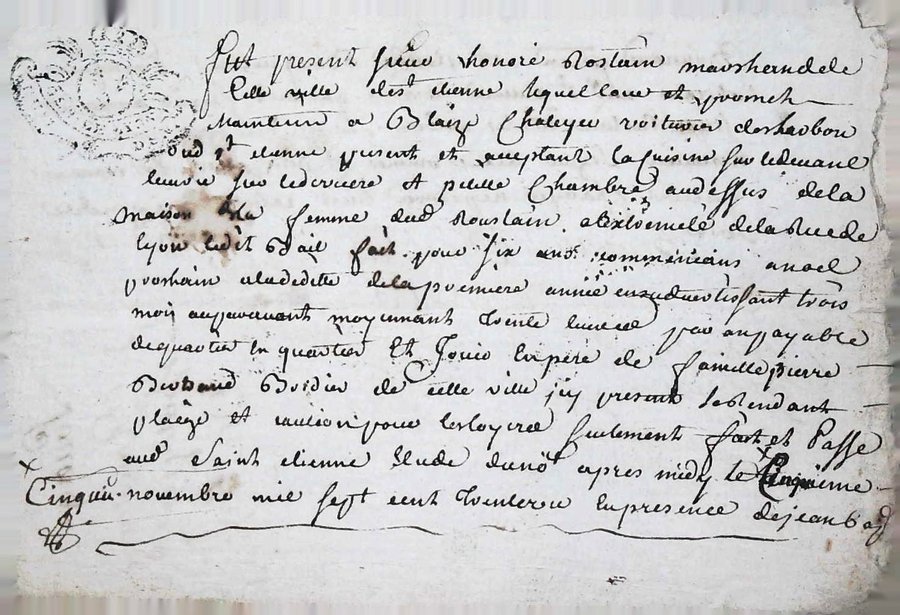 fut present sieur honoré Rostain marchand de
cette ville de st etienne lequel loue et promet
maintenir a Blaize Chaleyer voiturier de charbon
dud st etienne present et acceptant la cuisine sur le devant
sur le derriere et petite Chambre au dessus de la
maison de la femme dud Roustain a lextremité de la Rue de
lyon ledit Bail fait pour six ans commencans a noel
prochain a la deditte de la premiere année en sadvertissant trois
mois auparavant moyennant trente livres par an payable
de quartier en quartier et Jouir en pere de famille pierre
Bertrand Bordier de cette ville icy present se rendant
pleige et caution pour les loyers seulement fait et Passé
aud Saint etienne etude du no apres midy le
Cinquie novembre mil sept cent trente en presence de jean